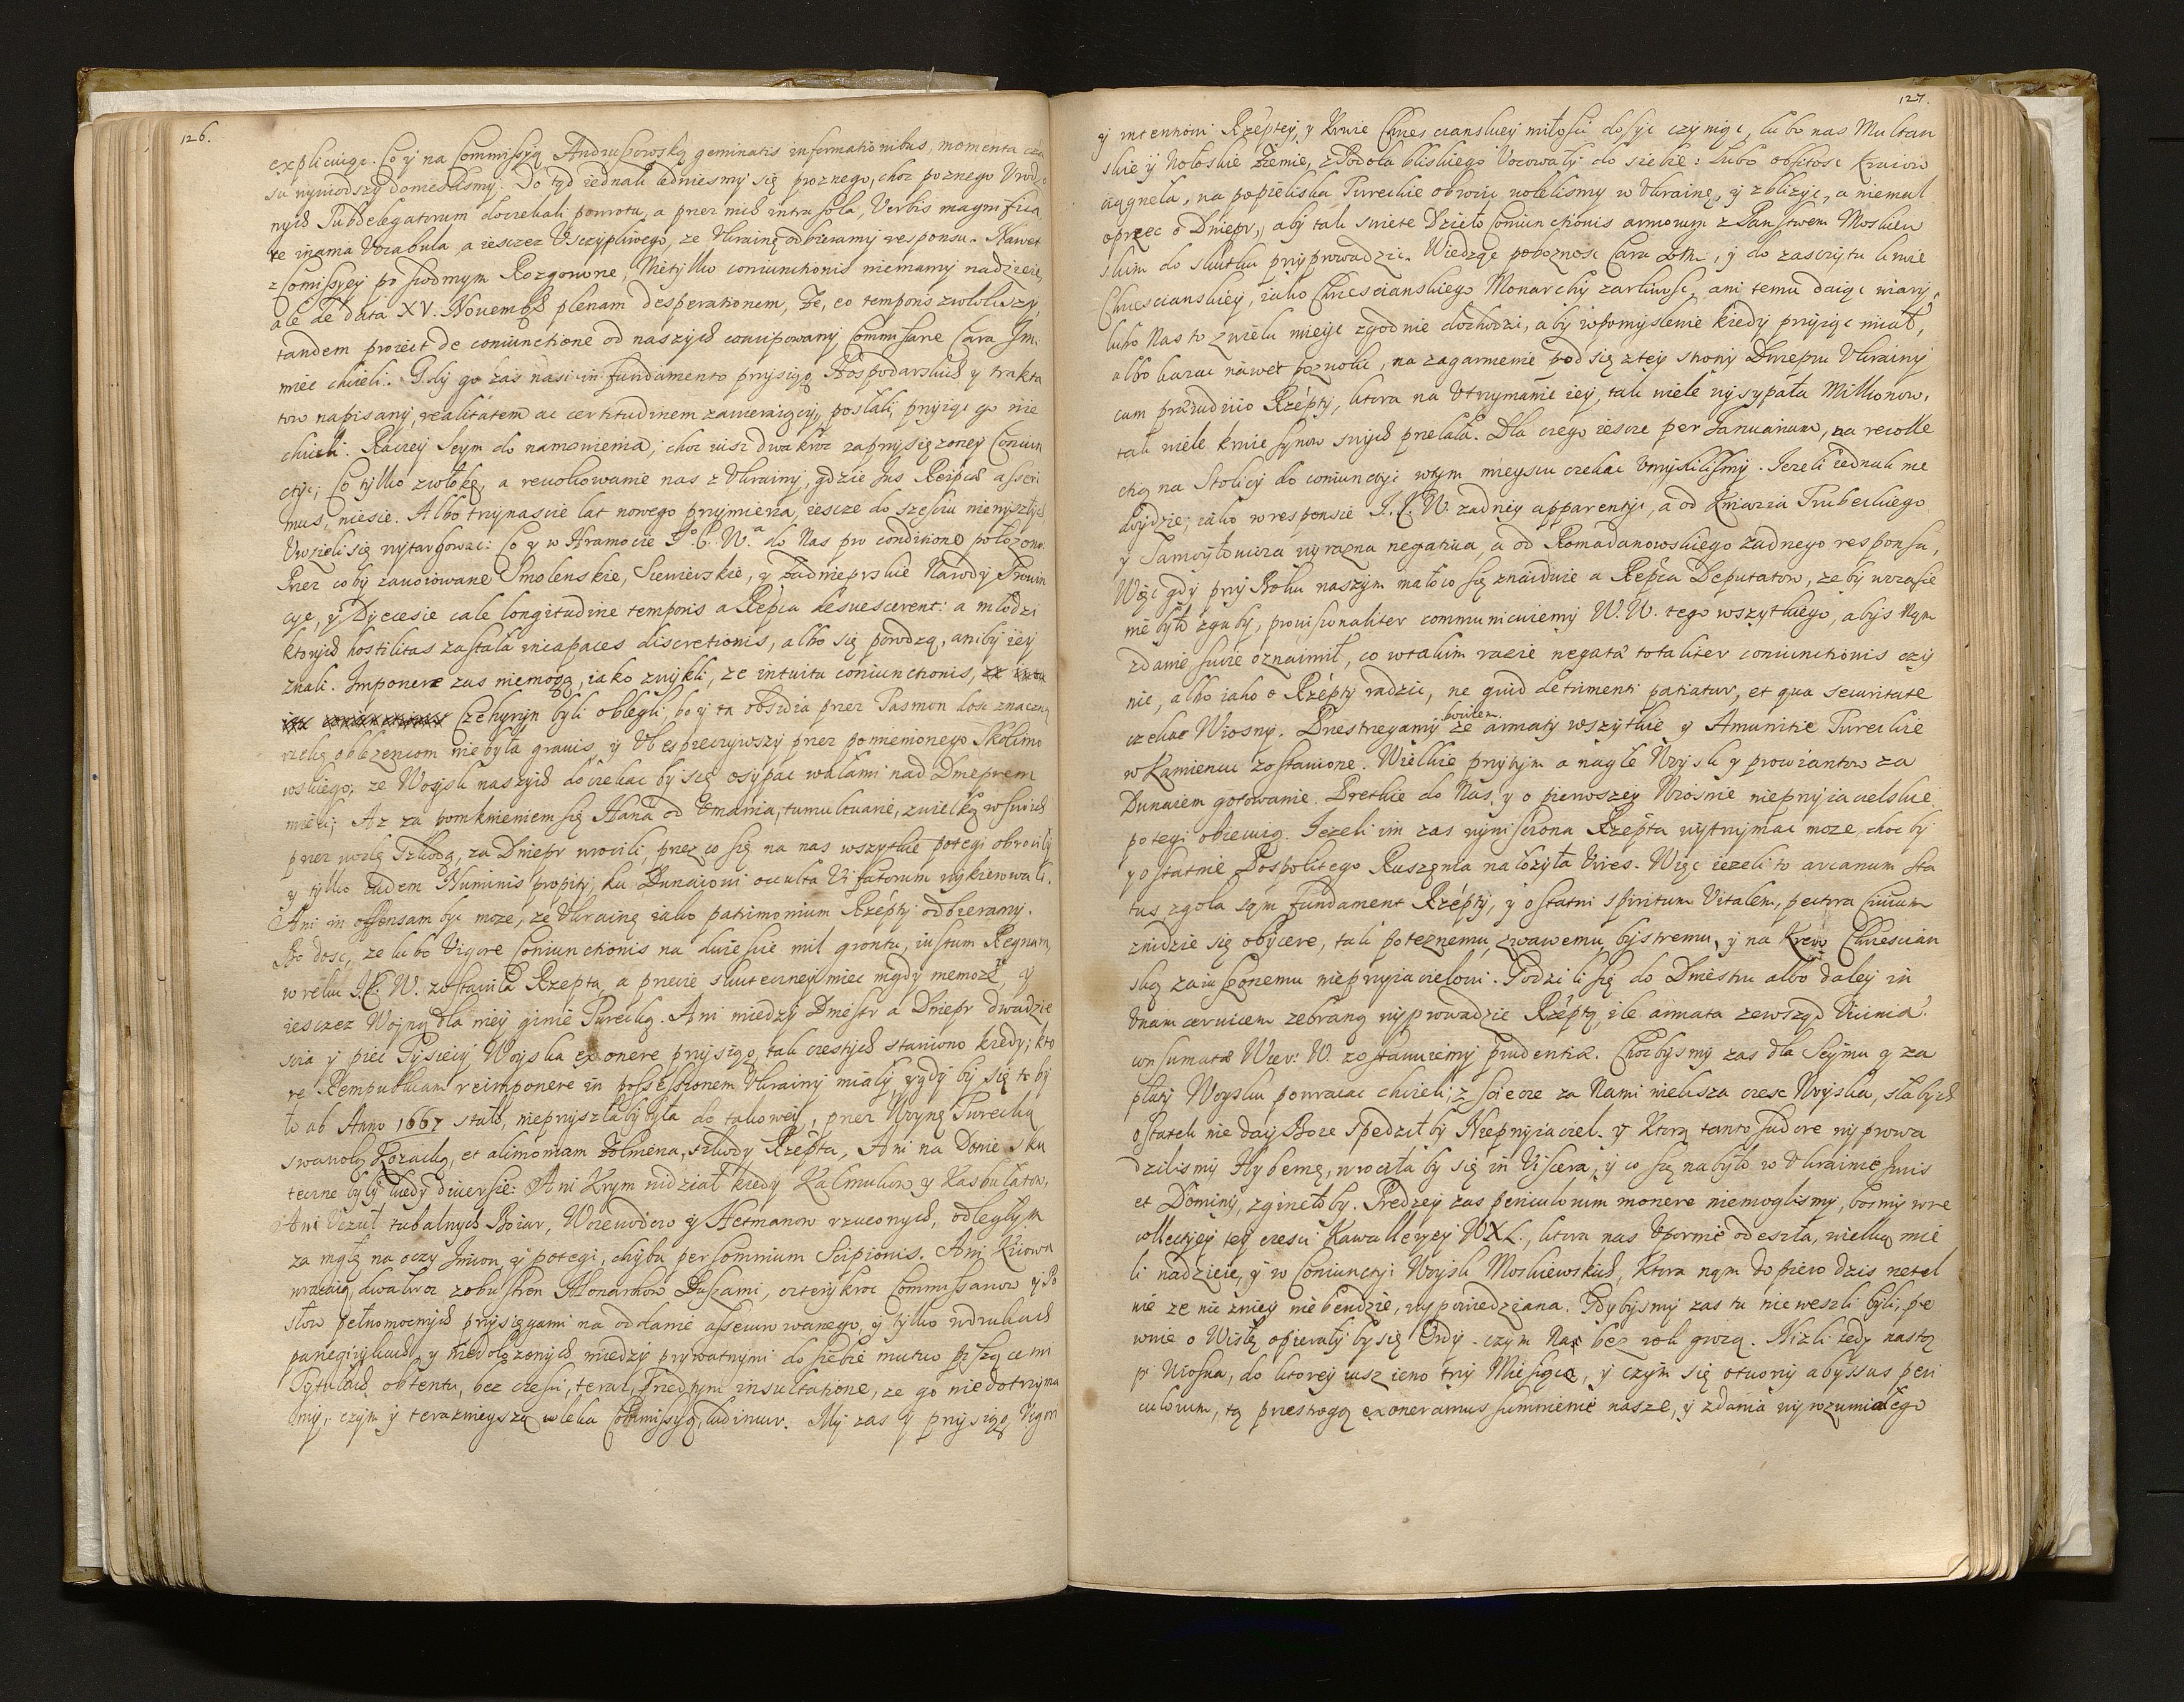 126.
explicuiąc. Co y na Commissyą Andruszowską geminatis informationibus, momenta cza
su wywodszy donieslismy. Do tąd iednak
nych Subdelegatorum doczekali powrotu, a przez nich intra sola, Verbis magnifica
re inania Vocabula, a iesczez Vsczypliwego, ze Vkrainę odbieramy responsu. Nawet
z Comissyey po siodmym Rozgoworze, Nietylko coniunctionis niemamy nadzieie,
ale de data XV. Novembr. plenam desperationem, Ze, eo temporis zwlokszy,
tandem proiect de coniunctione od naszych concipowany Commissarze Cara Jm:
miec chcieli. Gdy go zas nasi in fundamento przysiąg Hospodarskich y trakta
tow napisany, realitatem ac certitudinem zawieraiący, posłali, przyiąc go nie
chcieli. Raczey Seym do namowienia, choc iusz dwakroc zaprzysięzoney Coniun
ctyi, Co tylko zwłokę, a rewokowanie nas z Vkrainy, gdzie Jus Reipcae asseri
mus, niesie. Albo trzynascie lat nowego przymierza, iescze do szesciu niewyszłych,
Vwzieli się wytargowac: Co y w Hramocie J. C. W. do Nas pro conditione połozono.
Przez coby zawoiowane Smolenskie, Siewierskie, y Zadnieprskie Narody Prowin
cye, y Dyecesie cale longitudine temporis a Repca desuescerent: a młodzi
ktorych hostilitas zastała incapaces discretionis, albo się porodzą, aniby iey
znali. Imponere zas niemogą, iako zwykli, ze intuitu coniunctionis,
Czehryn byli oblegli, bo y ta obsidia przez Tasmin dosc znaczną
rzekę oblęzencom niebyła gravis, y Vbespieczywszy przez pomienionego Skolimo
wskiego, ze Woysk naszych doczekac by się osypac wałami nad Dnieprem
mieli; Az za pomknieniem się Hana od Vmania, tumultuarie, z wielką w swoich
przez wodę szkodą, za Dniepr wrocili, przez co się na nas wszytkie potęgi obrociły
y tylko cudem Numinis propitij, ku Dunaiowi occulta Vi fatorum wykierowali.
Ani in offensam byc moze, ze Vkrainę iako patrimonium Rzepty odbieramy.
Bo dosc, ze lubo Vigore Coniunctionis na dwiescie mil gruntu, iustum Regnum,
w ręku J. C. W. zostawiła Rzepta, a przecie skuteczney miec nigdy niemoze, y
iesczez Woynę dla niey ginie Turecką. Ani miedzy Dniestr a Dniepr dwadzie
scia y piec Tysiecy Woyska ex onere przysiąg, tak częstych stawiono kiedy; kto
re Rempublicam reimponere in possessionem Vkrainy miały, y gdy by się to by
ło ab Anno 1667 stało, nieprzyszłaby była do takowey, przez Woynę Turecką
swawolą Kozacką, et alimoniam Zołnierza, szkody Rzepta, Ani na Donie sku
teczne były kiedy diversie: Ani Krym widział kiedy Kałmukow y Kasbułatow,
Ani Vczuł tubalnych Boiar, Woiewodow y Hetmanow rzuconych, odległym
za mgłę na oczy Imion, y potęgi, chyba per somnium Scipionis. Ani Kiiowa
wracaią, dwakroc z obu stron Monarchow Duszami, czterykroc Commissarzow y Po
słow pełnomocnych przysięgami na oddanie assecurowanego, y tylko w drukach
panegirykach, y niedołozonych miedzy prywatnymi do siebie mutuo piszącemi
Tytułach obtentu, bez czesci, teraz, przedtym insultatione, ze go niedotrzyma
my, czym y terazniejszą wlekа Commissyą, ludimur. My zas y przysiąg Vigori
127.
y intentiowi Rzeptey, y Krwie Chrzescianskiey miłosci dosyc czyniąc, lubo nas Multan
skie y Wołoskie Ziemie, z Podola bliskiego Vocowały do siebie: Lubo obfitosc Kraiow
ciągnęła, na popieliska Tureckie obrocic wolelismy w Vkrainę, y zblizyc, a niemal
oprzec o Dniepr, aby tak swiete Dzieło Coniunctionis armorum z Panstwem Moskiew
skim do skutku przyprowadzic. Wiedząc poboznosc Cara Jmci, y do zasczytu krwie
Chrzescianskiey, iako Chrzescianskiego Monarchy zarliwosc, ani temu daiąc wiary,
lubo Nas to z wielu mieysc zgodnie dochodzi, aby w pomyslenie kiedy przyiąc miał,
albo kazac nawet pozwolic, na zagarnienie pod się z tey strony Dniepru Vkrainy
cum praeiudicio Rzepty, ktora na Vtrzymanie iey, tak wiele wysypała Millionow,
tak wiele krwie synow swych przelała. Dla czego iescze per Januarium, na recolle
ctią na Stolicy do coniunctyi w tym mieyscu czekac Vmyslilismy. Jezeli iednak nie
doydzie, iako w responsie J. C. W. zadney apparentyi, a od Kniazia Trubeckiego
y Samoyłowicza wyrazna negativa, a od Romadanowskiego zadnego responsu,
Więc gdy przy Boku naszym mało co się znaiduie a Repca Deputatow, ze by w czasie
nie było zguby, provisionaliter communicuiemy W. W. tego wszytkiego, abys Nam
zdanie swoie oznaimił, co w takim razie negata totaliter coniunctionis czy
nic, albo iako o Rzepty radzic, ne quid detrimenti patiatur, et qua securitate
czekac Wiosny. Przestrzegamy bowiem ze armaty wszytkie y Amunitie Tureckie
w Kamiencu zostawione. Wielkie przytym a nagłe Woysk y prowiantow za
Dunaiem gotowanie. Prętkie do Nas, y o pierwszey Wiosnie nieprzyiacielskie
potęgi obiecuią. Jezeli im zas wyniszczona Rzepta wytrzymac moze, choc by
y ostatnie Pospolitego Ruszenia nałozyła Vires. Więc iezeli to arcanum sta
tus zgoła sąm fundament Rzepty, y ostatni spiritum Vitalem, pectora Civium
znidzie się obiicere, tak poteznemu, zwawemu, bystremu, y na Krew Chrzescian
ską zaiuszonemu nieprzyiacielowi. Godzi li się do Dniestru albo daley in
Vnam cervicem zebraną wyprowadzic Rzeptą, ile armata zewsząd Vicinia?
consumatae W. zostawuiemy prudentiae. Chocbysmy zas dla Seymu y za
płaty Woysku powracac chcieli, za Nami wieksza czesc Woyska, słabych
ostatek nie day Boze spedził by Nieprzyiaciel. y Ktorą tanto sudore wyprowa
dzilismy Hybernę, wrociła by się in Viscera, y co się nabyło w Vkrainie Juris
et Dominij, zginełoby. Predzey zas periculorum monere niemoglismy, bosmy w re
collectyey tey czesci Kawalleryey WXL., ktora nas Vpornie odeszła, wielką mie
li nadzieie, y w Coniunctyi Woysk Moskiewskich, Ktora nąm dopiero dzis rzetel
nie ze nic zniey niebendzie, wypowiedziana. Gdybysmy zas tu nieweszli byli, pe
wnie o Wisłę opierałyby się Ordy. czym Nas bez woli grozą. Nizli tedy nastą
pi Wiosna, do ktorey iusz ieno trzy Miesiące, y czym się otworzy abyssus peri
culorum, tą przestrogą exoneramus summienie nasze, y zdania wyrozumiałego